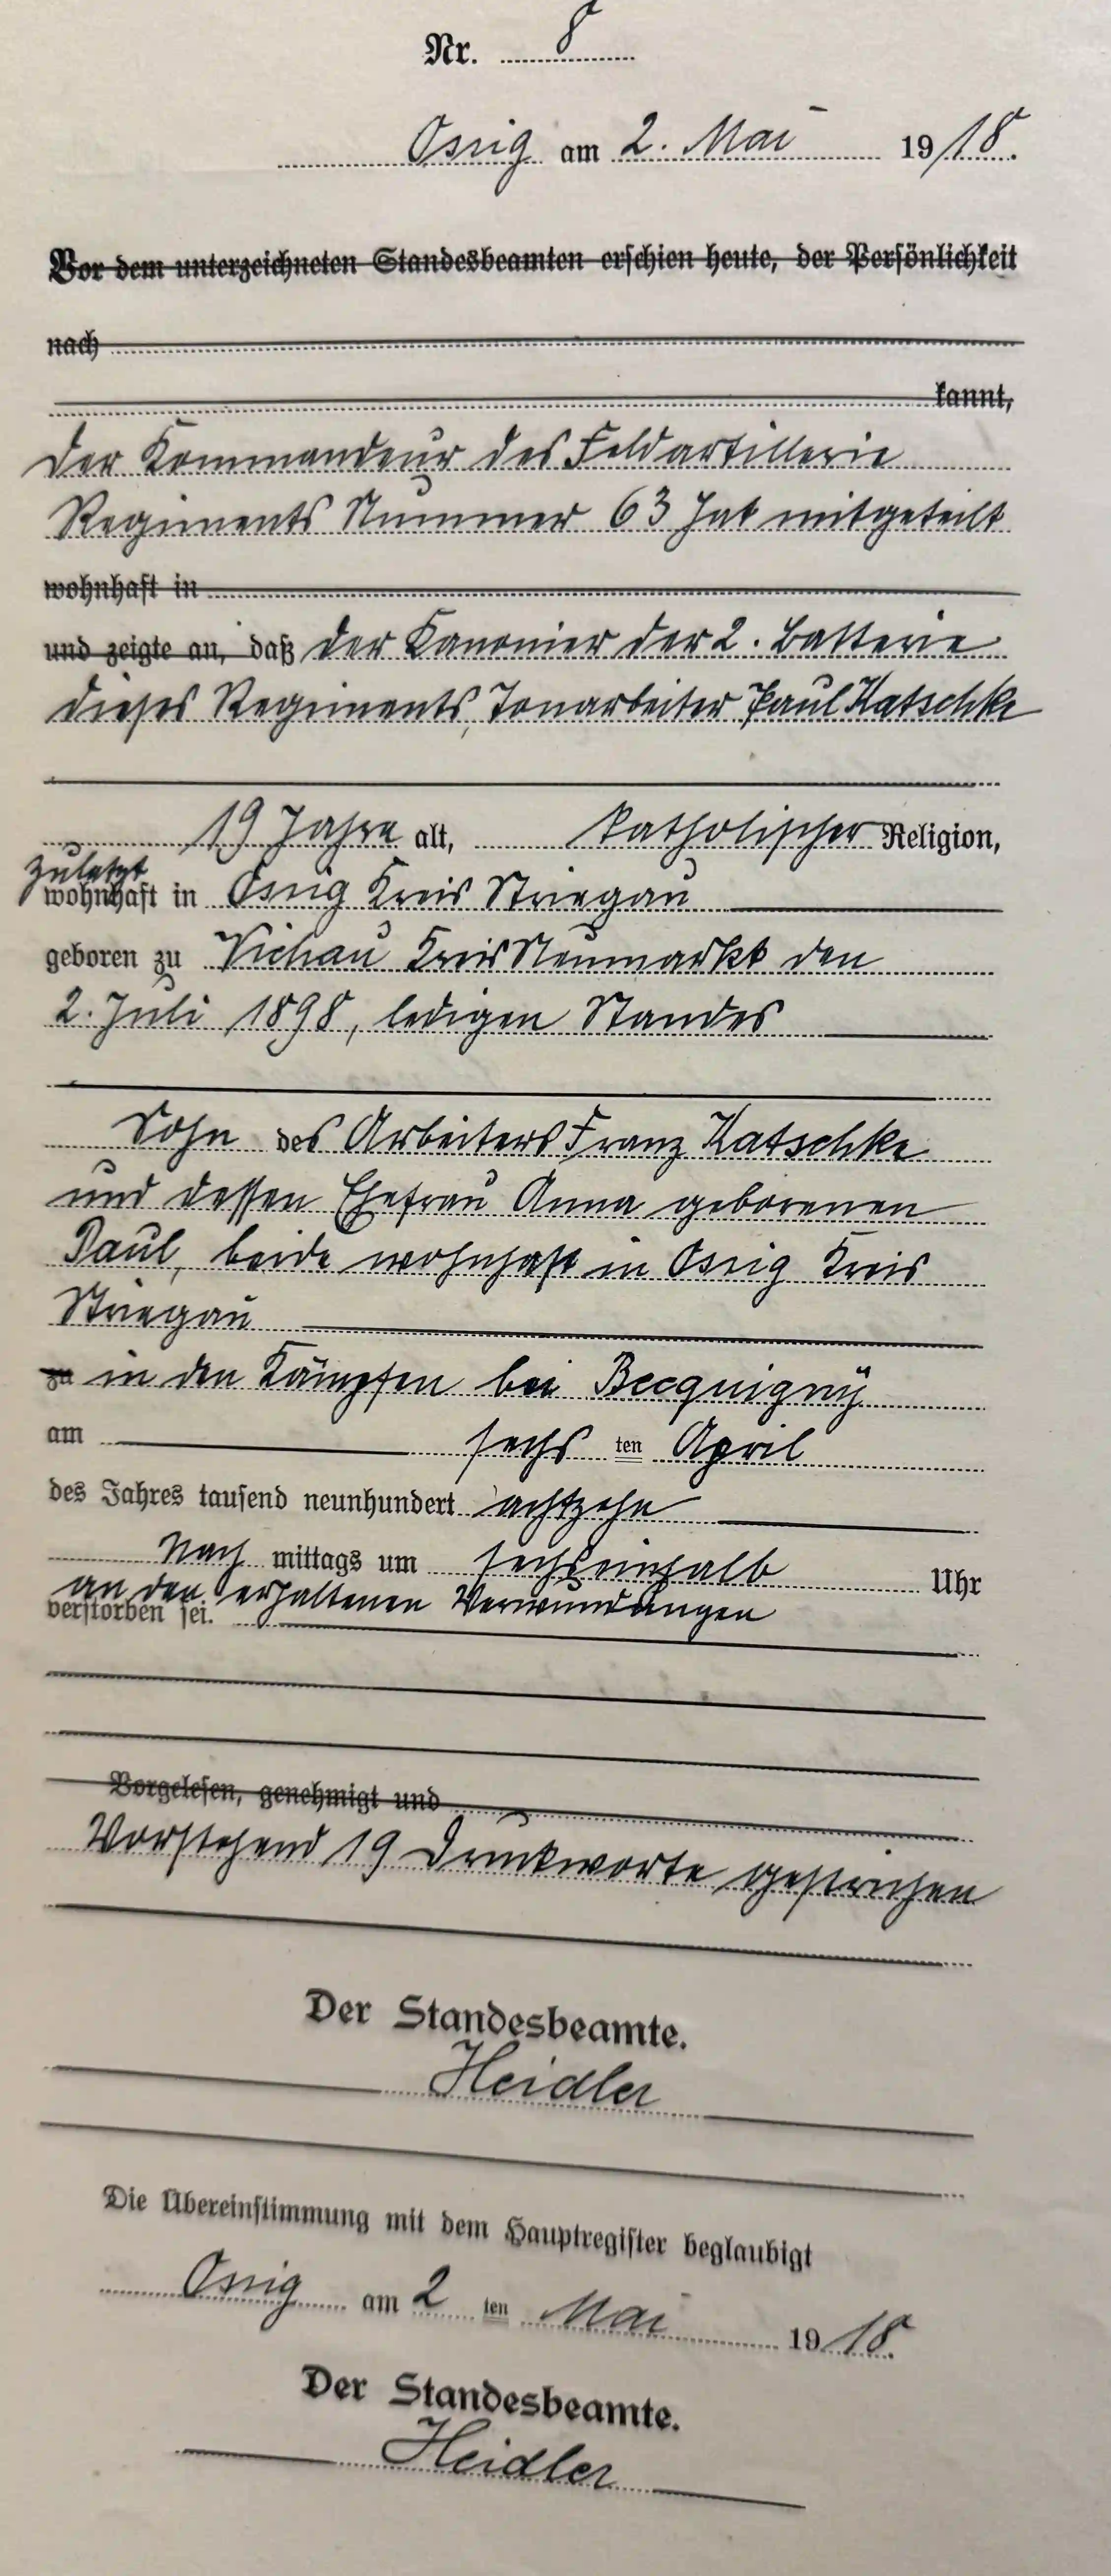 Nr. 8
Ossig am 2. Mai 1918.
Vor dem unterzeichneten Standesbeamten erschien heute, der Persönlichkeit
nach
kannt,
der Kommandeur des Feldartillerie
Regiments Nummer 63 hat mitgeteilt
wohnhaft in
und zeigte an, daß der Kanonier der 2. Batterie
dieses Regiments, Tonarbeiter Paul Katschke
19 Jahre alt, katholischer Religion,
zuletzt
wohnhaft in Ossig Kreis Striegau
geboren zu Viehau Kreis Neumarkt den
2. Juli 1898, ledigen Standes
Sohn des Arbeiters Franz Katschke
und dessen Ehefrau Anna geborenen
Paul, beide wohnhaft in Ossig Kreis
Striegau
zu in den Kämpfen bei Becquigny
am sechs ten April
des Jahres tausend neunhundert achtzehn
Nach mittags um sechseinhalb Uhr
an den erhaltenen Verwundungen
verstorben sei.
Vorgelesen, genehmigt und
Vorstehend 19 Druckworte gestrichen
Der Standesbeamte.
Heidler
Die Übereinstimmung mit dem Hauptregister beglaubigt
Ossig am 2 ten Mai 1918.
Der Standesbeamte.
Heidler